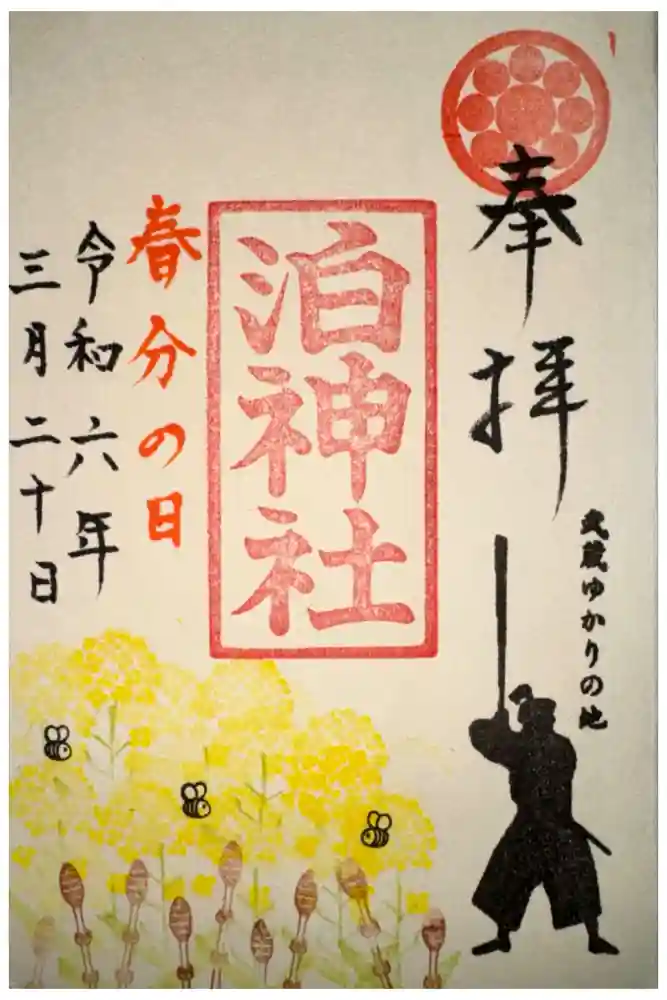 奉拝
武蔵ゆかりの地
泊神社
春分の日
令和六年
三月二十日